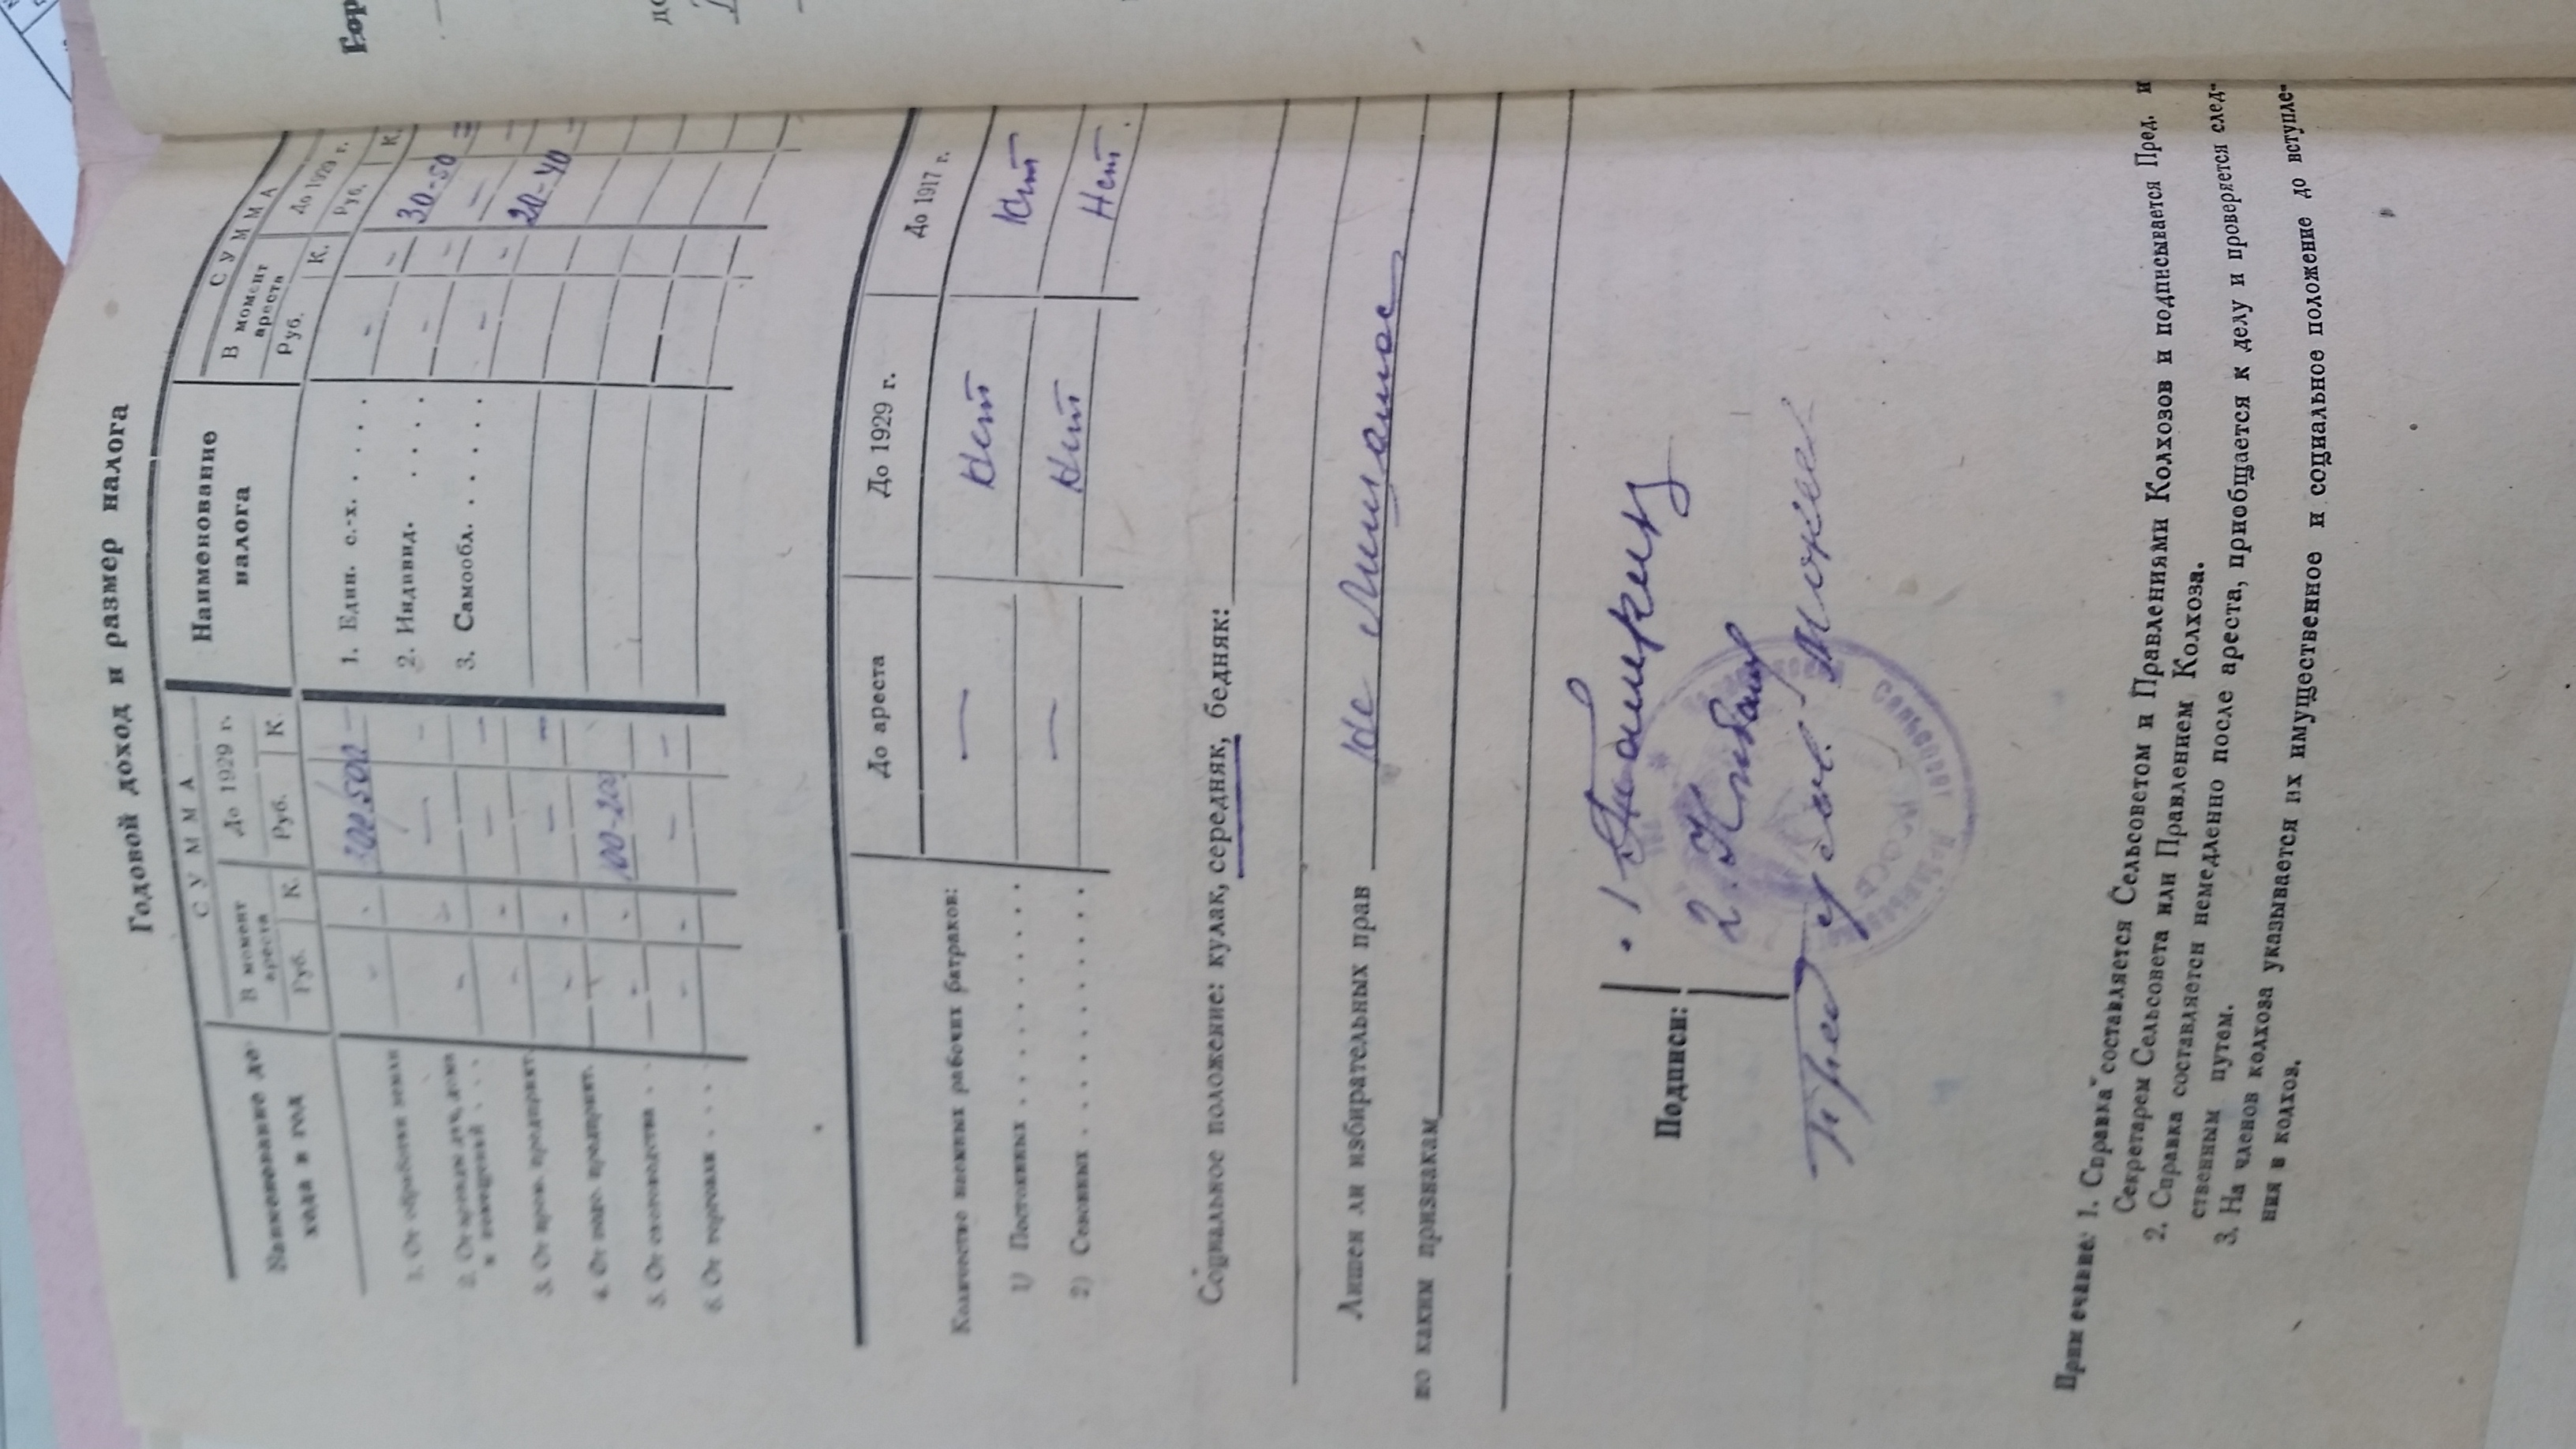 Годовой доход и размер налога
Наименование до-
хода в год
СУММА
В момент
ареста
До 1929 г.
Руб.
К.
Руб.
К.
Наименование
налога
СУММА
В момент
ареста
До 1929 г.
Руб.
К.
Руб.
К.
1. От обработки земли
300/500 -
1. Един. с.-х. . . . .
30-50 =
2. От аренды
и помещений . . .
2. Индивид. . . . .
3. От пром. предприят.
3. Самообл. . . . . .
20-40 -
4. От подс. предприят.
5. От скотоводства . .
100-200
6. От торговли . . . .
До ареста
До 1929 г.
До 1917 г.
Количество наемных рабочих батраков:
1) Постоянных . . . . . . . . . .
—
Нет
Нет
2) Сезонных . . . . . . . . . . .
—
Нет
Нет.
Социальное положение: кулак, середняк, бедняк:
Лишен ли избирательных прав
Не Лишался
по каким признакам
Подписи:
1
2.
Пред. с/сов.
Сельсовет
Примечание: 1. Справка составляется Сельсоветом и Правлениями Колхозов и подписывается Пред. и
Секретарем Сельсовета или Правлением Колхоза.
2. Справка составляется немедленно после ареста, приобщается к делу и проверяется след-
ственным путем.
3. На членов колхоза указывается их имущественное и социальное положение до вступле-
ния в колхоз.